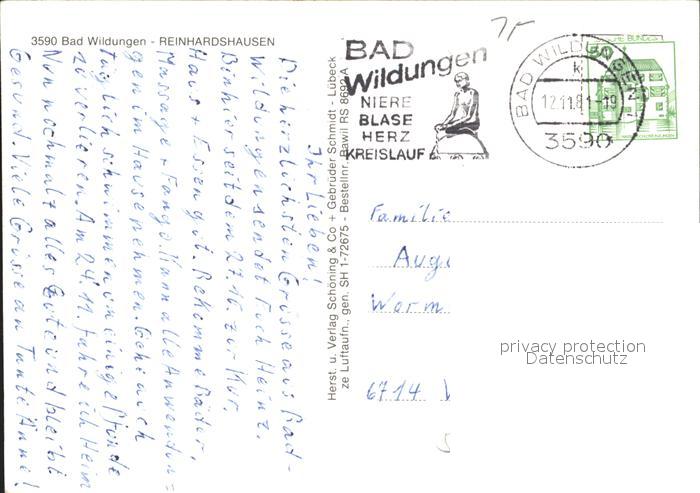 3590 Bad Wildungen - REINHARDSHAUSEN
BAD
Wildungen
NIERE
BLASE
HERZ
KREISLAUF
BAD WILDUNGEN 2
k
12.11.81-19
3590
Herst. u. Verlag Schöning & Co + Gebrüder Schmidt - Lübeck
ze Luftaufn., gen. SH 1-72675 - Bestellnr. Bawil RS 8692 A
Ihr Lieben!
Die herzlichsten Grüsse aus Bad-
Wildungen sendet Euch Heinz.
Bin hier seit dem 27.10. zur Kur
Haus Essen gut. Bekomme Bäder,
Massage + Fango. Kann alle Anwendun=
gen im Hause nehmen. Gehe nich
täglich schwimmen um einige Pfunde
zu verlieren. Am 24.11. fahre ich Heim
Nun nochmalz alles Gute und bleibt
Gesund. Viele Grüsse an Tante Änne!
Familie
Augu
Worm
6714
privacy protection
Datenschutz